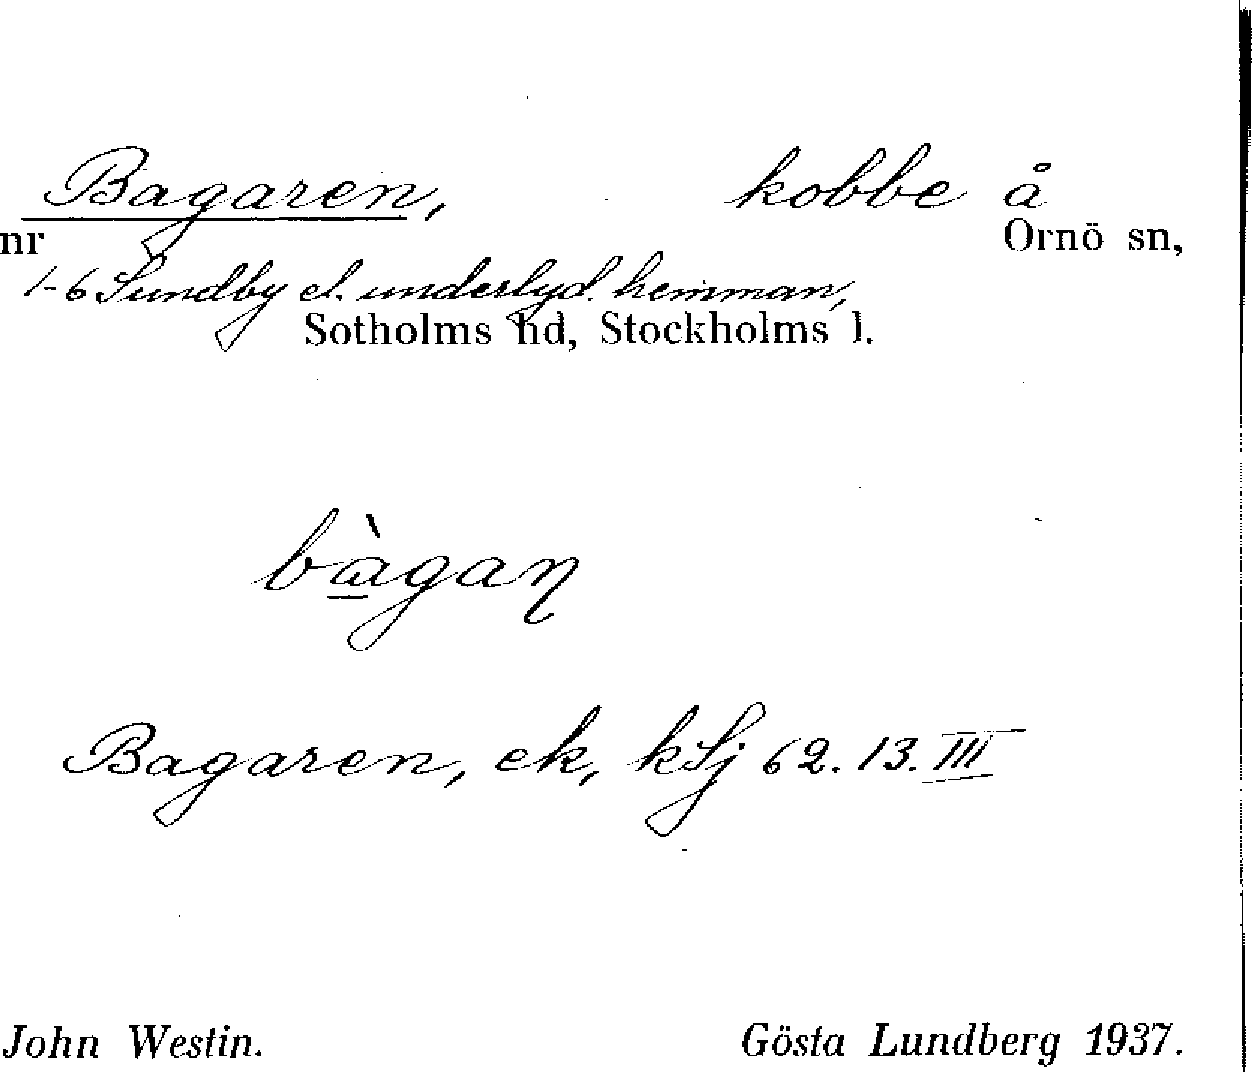 Bagaren, kobbe å
nr Ornö sn,
1-6 Sundby el. underlyd. hemman,
Sotholms hd, Stockholms l.
bàgaɳ
Bagaren, ek, kSj 62.13.III
John Westin. Gösta Lundberg 1937.